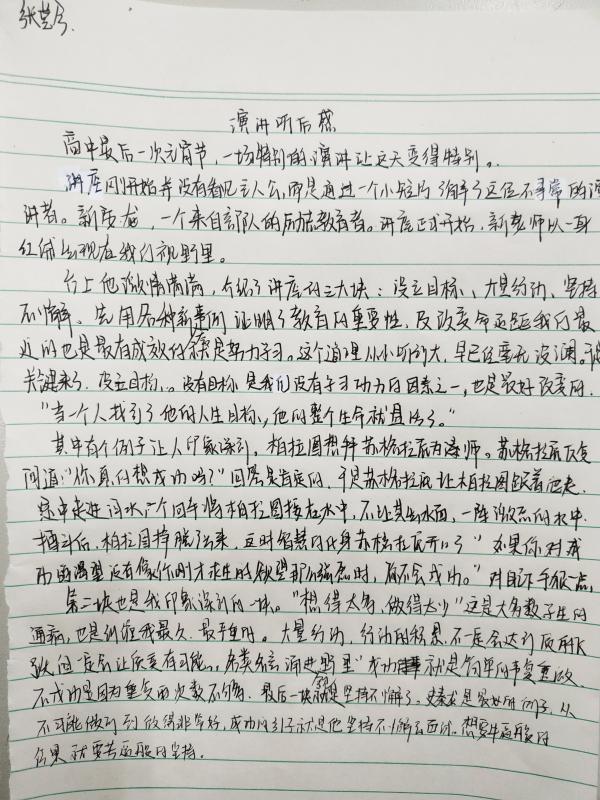 张芸
演讲听后感
高中最后一次元宵节,一场特别的演讲让这天变得特别。
讲座刚开始并没有看见主人公,而是通过一个小短片了解了这位不寻常的演
讲者。新庆龙,一个来自部队的励志教育者。讲座正式开始,新老师以一身
红绒出现在我们视野里。
台上他激情满满,介绍了讲座的三大块:设立目标、大量行动、坚持
不懈。先用各种案例证明了教育的重要性,及改变命运距我们最
近的也是最有成效的就是努力学习。这个道理从小听到大,早已经毫无波澜。
关键来了,设立目标。没有目标是我们没有学习动力的因素之一,也是最好改变的。
"当一个人找到了他的人生目标,他的整个生命就
其中有个例子让人印象深刻,柏拉图想拜苏格拉底为老师。苏格拉底反复
问道:"你真的想成功吗?"回答是肯定的,于是苏格拉底让柏拉图跟着他走,
走进河水,一个回手将柏拉图按在水中,不让其出水面,一阵激烈的水中
搏斗后,柏拉图挣脱出来,这时智慧的化身苏格拉底开口了"如果你对成
功的渴望没有像你刚才求生的欲望那么强烈时,你不会成功。"
第二块也是我印象深刻的一块。"想得太多,做得太少"这是大多数学生的
通病,也是纠缠我最久、最严重的。大量行动,行动的积累不一定会达到质的飞
跃,但一定会让质变有可能。"成功就是简单的事重复做,
不成功是因为重复的次数不够。最后一块就是坚持不懈了。是最好的例子,从
不可能做到到做得非常好,成功的例子就是他坚持不懈去面试。想要牛逼的
结果就要有的坚持。